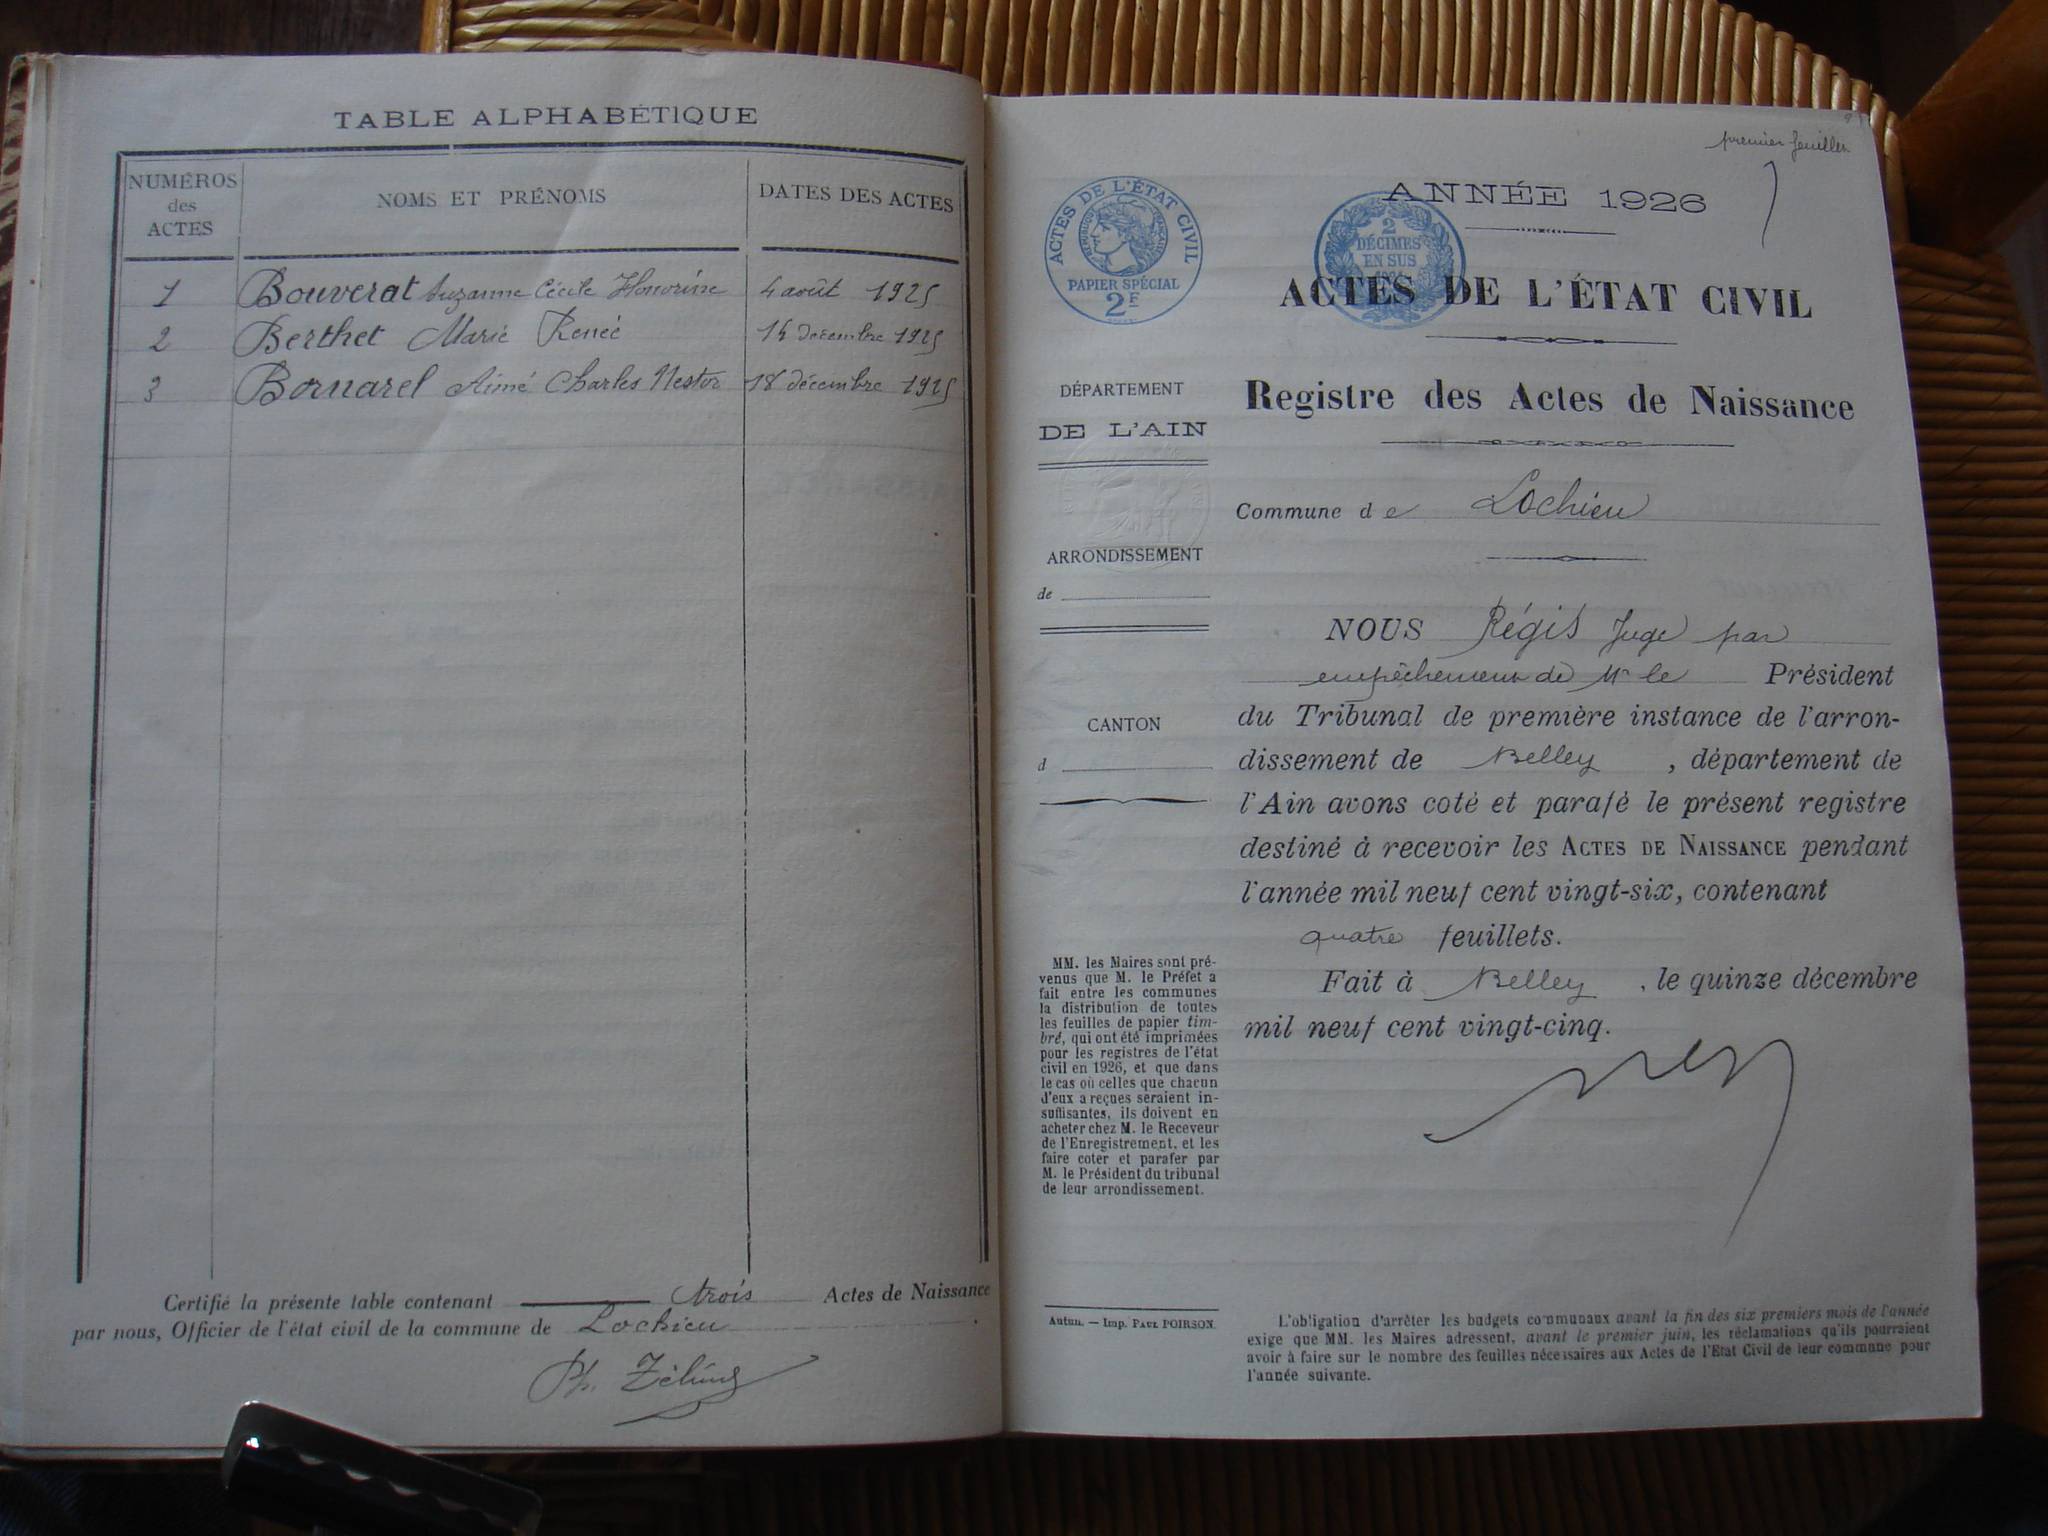 TABLE ALPHABÉTIQUE
NUMÉROS des ACTES NOMS ET PRÉNOMS DATES DES ACTES
1 Bouverat Suzanne Cécile Honorine 4 août 1925
2 Berthet Marie Renée 14 décembre 1925
3 Bornarel Aimé Charles Nestor 18 décembre 1925
Certifié la présente table contenant trois Actes de Naissance
par nous, Officier de l'état civil de la commune de Lochieu
premier feuillet
ANNÉE 1926
ACTES DE L'ÉTAT CIVIL
RÉPUBLIQUE FRANÇAISE
PAPIER SPÉCIAL
2F
2
DÉCIMES
EN SUS
ACTES DE L'ÉTAT CIVIL
Registre des Actes de Naissance
DÉPARTEMENT
DE L'AIN
ARRONDISSEMENT
de
CANTON
d
Commune de Lochieu
NOUS Régis Juge par
empêchement de Mr le Président
du Tribunal de première instance de l'arron-
dissement de Belley , département de
l'Ain avons coté et parafé le présent registre
destiné à recevoir les ACTES DE NAISSANCE pendant
l'année mil neuf cent vingt-six, contenant
quatre feuillets.
Fait à Belley , le quinze décembre
mil neuf cent vingt-cinq.
MM. les Maires sont pré-
venus que M. le Préfet a
fait entre les communes
la distribution de toutes
les feuilles de papier tim-
bré, qui ont été imprimées
pour les registres de l'état
civil en 1926, et que dans
le cas où celles que chacun
d'eux a reçues seraient in-
suffisantes, ils doivent en
acheter chez M. le Receveur
de l'Enregistrement, et les
faire coter et parafer par
M. le Président du tribunal
de leur arrondissement.
Autun. — Imp. PAUL POIRSON.
L'obligation d'arrêter les budgets communaux avant la fin des six premiers mois de l'année
exige que MM. les Maires adressent, avant le premier juin, les réclamations qu'ils pourraient
avoir à faire sur le nombre des feuilles nécessaires aux Actes de l'Etat Civil de leur commune pour
l'année suivante.